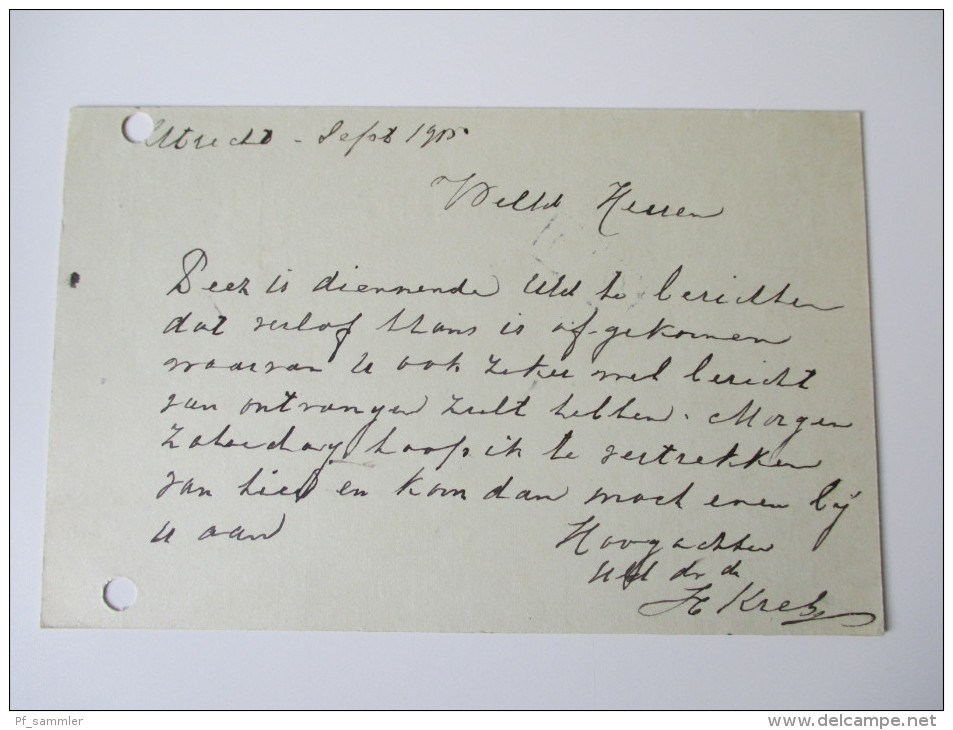 Utrecht - Sept 1905
WelEd Heeren
Deez is diennende UEd te berichten
dat verlof thans is af-gekomen
waarvan u ook zeker wel bericht
van ontvangen zult hebben. Morgen
Zaterdag hoop ik te vertrekken
van hier en kom dan noch even bij
u aan
Hoogachten
UEd dr de
H Krebs
Pf_sammler
www.delcampe.net